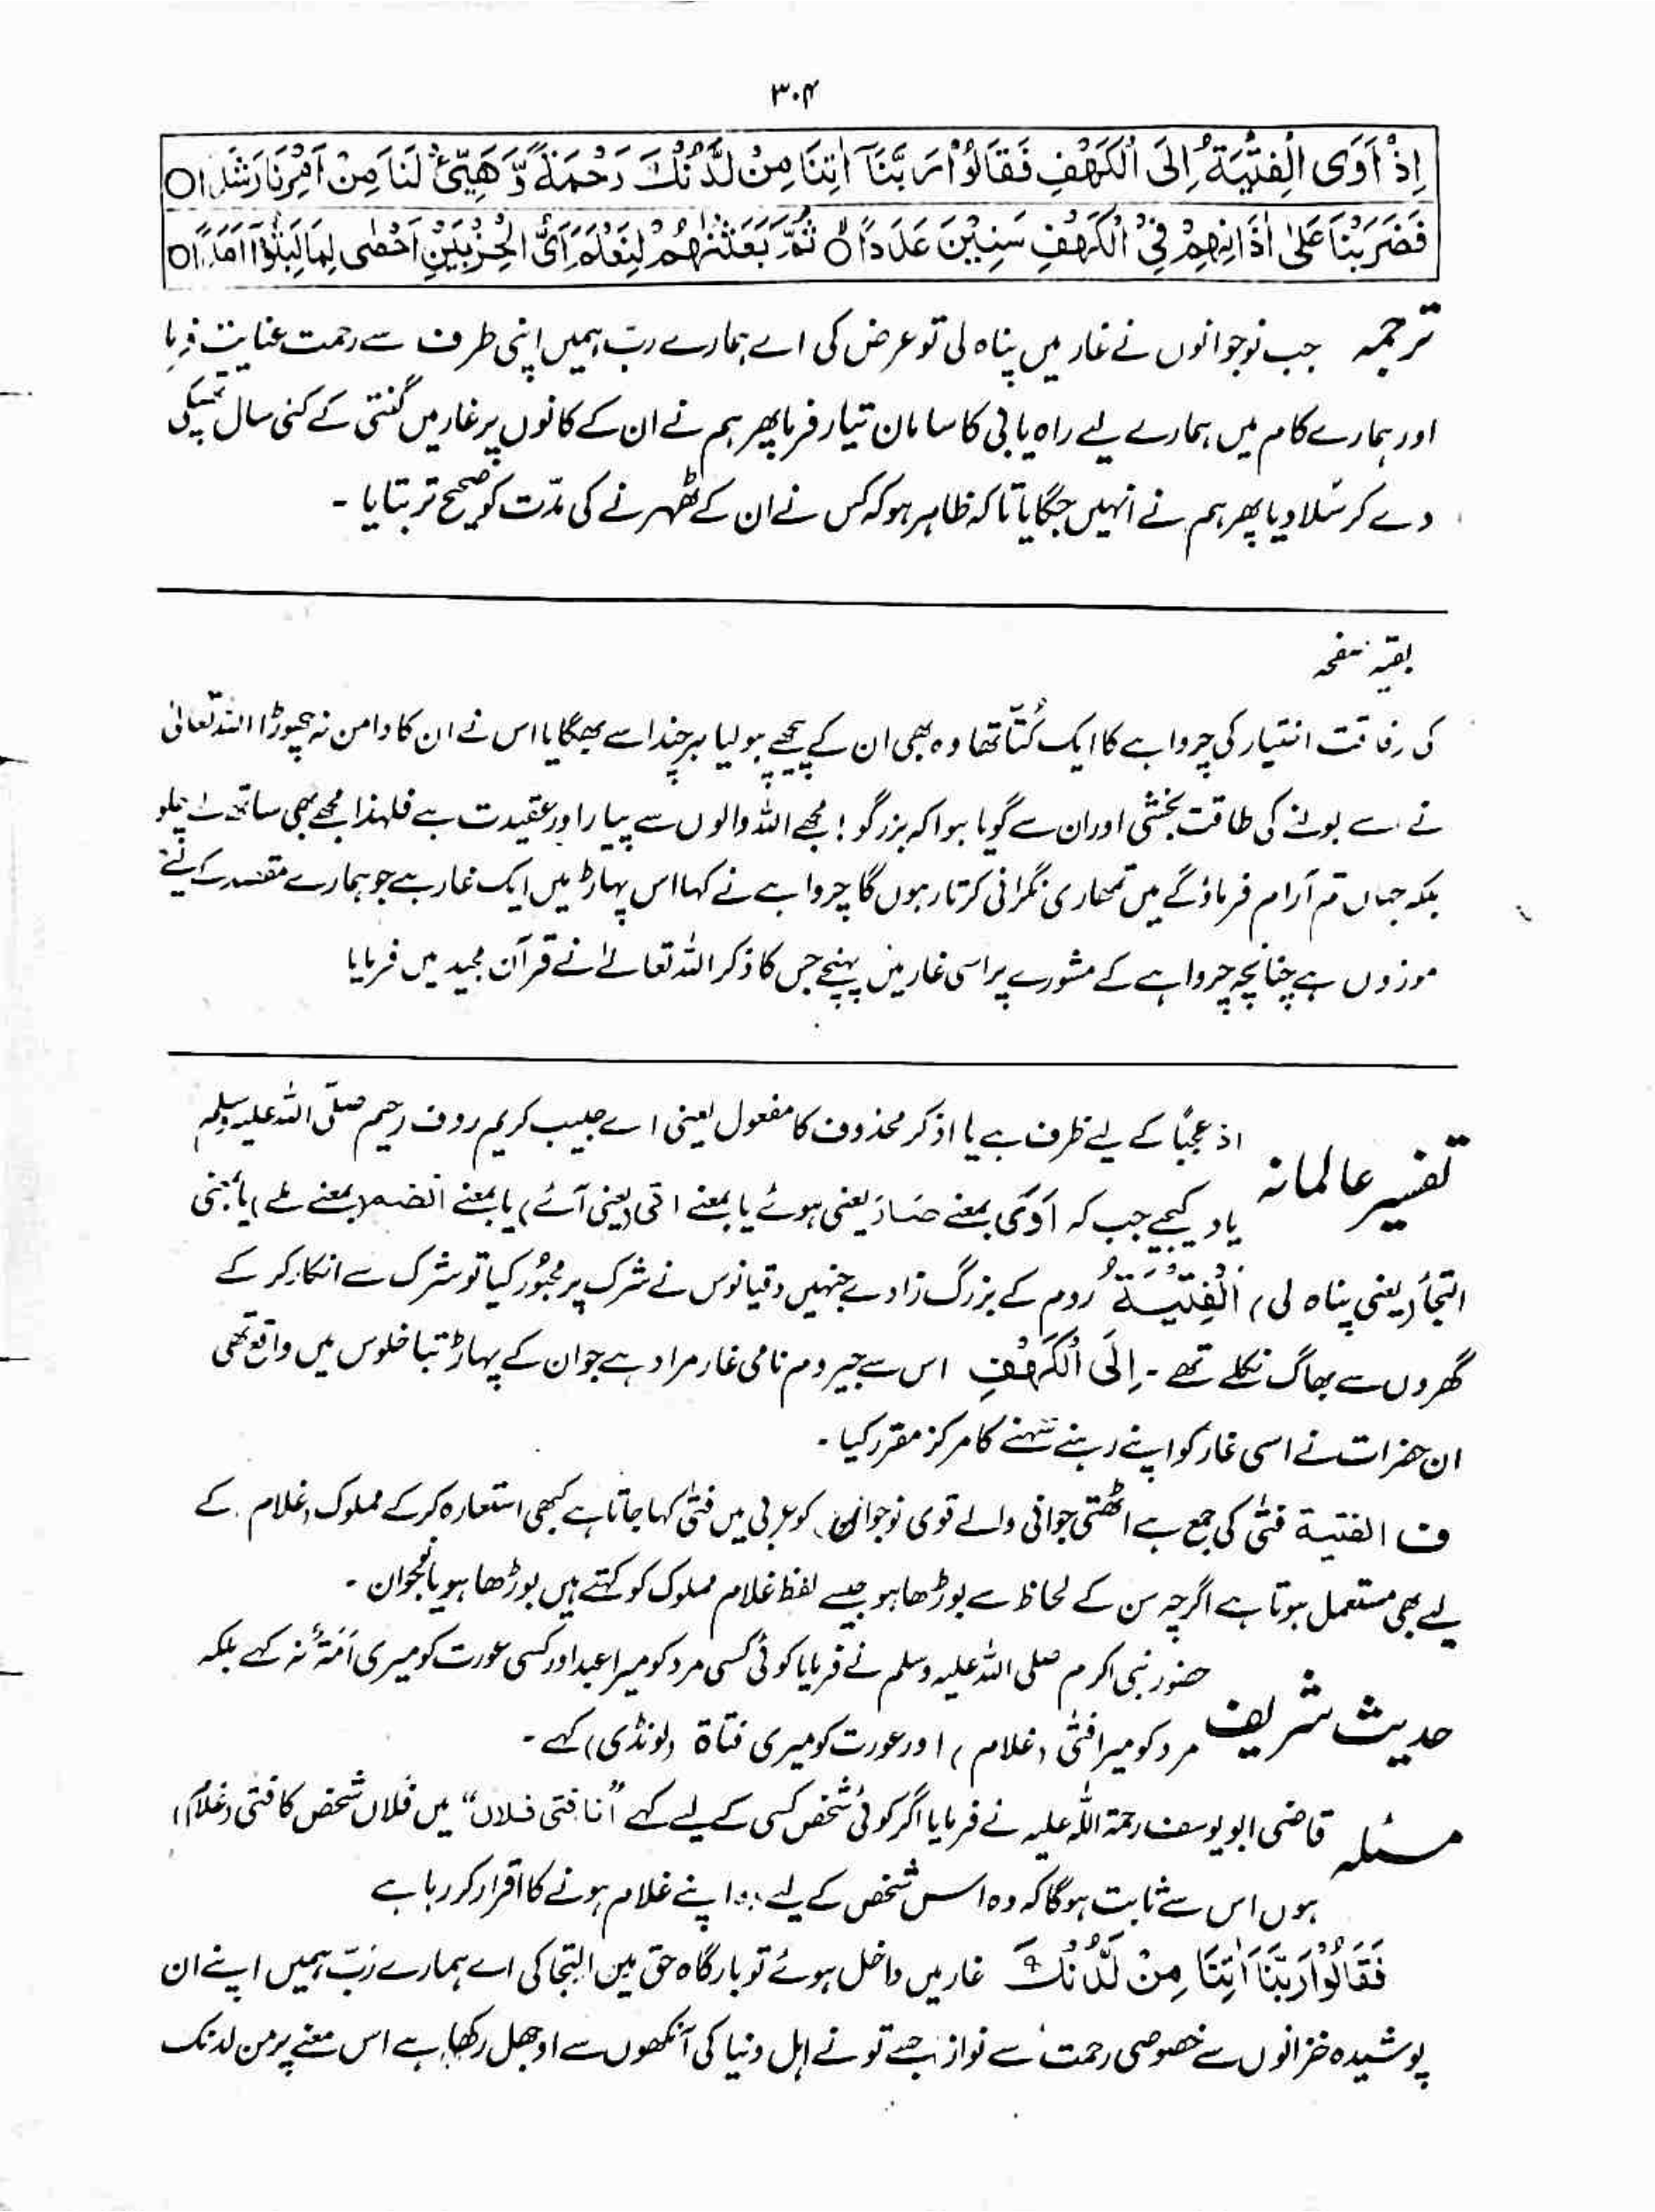 ۳۰۴
اِذْ اَوَى الْفِتْيَةُ اِلَى الْكَهْفِ فَقَالُوْا رَبَّنَآ اٰتِنَا مِنْ لَّدُنْكَ رَحْمَةً وَّ هَيِّئْ لَنَا مِنْ اَمْرِنَا رَشَدًا ○
فَضَرَبْنَا عَلٰٓى اٰذَانِهِمْ فِى الْكَهْفِ سِنِيْنَ عَدَدًا ○ ثُمَّ بَعَثْنٰهُمْ لِنَعْلَمَ اَىُّ الْحِزْبَيْنِ اَحْصٰى لِمَا لَبِثُوْٓا اَمَدًا ○
ترجمہ جب نوجوانوں نے غار میں پناہ لی تو عرض کی اے ہمارے ربّ ہمیں اپنی طرف سے رحمت عنایت فرما
اور ہمارے کام میں ہمارے لیے راہ یابی کا سامان تیار فرما پھر ہم نے ان کے کانوں پر غار میں گنتی کے کئی سال تھپکی
دے کر سُلا دیا پھر ہم نے انہیں جگایا تاکہ ظاہر ہو کہ کس نے ان کے ٹھہرنے کی مدّت کو صحیح تر بتایا ۔
بقیہ صفحہ
کی رفاقت اختیار کی چرواہے کا ایک کُتّا تھا وہ بھی ان کے پیچھے ہو لیا ہر چند اسے بھگایا اس نے ان کا دامن نہ چھوڑا اللہ تعالٰی
نے اسے بولنے کی طاقت بخشی اور ان سے گویا ہوا کہ بزرگو ! مجھے اللہ والوں سے پیار اور عقیدت ہے فلہٰذا مجھے بھی ساتھ لے چلو
بلکہ جہاں تم آرام فرماؤ گے میں تمھاری نگرانی کرتا رہوں گا چرواہے نے کہا اس پہاڑ میں ایک غار ہے جو ہمارے مقصد کے لیے
موزوں ہے چنانچہ چرواہے کے مشورے پر اسی غار میں پہنچے جس کا ذکر اللہ تعالےٰ نے قرآن مجید میں فرمایا
تفسیر عالمانہ اذ عجبًا کے لیے ظرف ہے یا اذکر محذوف کا مفعول یعنی اے حبیب کریم روف رحیم صلّی اللہ علیہ وسلم
یاد کیجیے جب کہ اَوَی بمعنے صَارَ یعنی ہوئے یا بمعنے اتی (یعنی آئے) یا بمعنے انضم (بمعنے ملے) یا بمعنی
التجأ (یعنی پناہ لی) اَلْفِتْيَةُ روم کے بزرگ زادے جنہیں دقیانوس نے شرک پر مجبُور کیا تو شرک سے انکار کر کے
گھروں سے بھاگ نکلے تھے ۔ اِلَى الْكَهْفِ اس سے جیروم نامی غار مراد ہے جو ان کے پہاڑ تباخلوس میں واقع تھی
ان حضرات نے اسی غار کو اپنے رہنے سہنے کا مرکز مقرر کیا ۔
ف الفتیة فتیٰ کی جمع ہے اٹھتی جوانی والے قوی نوجوان کو عربی میں فتیٰ کہا جاتا ہے کبھی استعارہ کر کے مملوک، غلام کے
لیے بھی مستعمل ہوتا ہے اگرچہ سن کے لحاظ سے بوڑھا ہو جیسے لفظ غلام مملوک کو کہتے ہیں بوڑھا ہو یا نوجوان ۔
حدیث شریف حضور نبی اکرم صلی اللہ علیہ وسلم نے فرمایا کوئی کسی مرد کو میرا عبد اور کسی عورت کو میری اَمَةٌ نہ کہے بلکہ
مرد کو میرا فتیٰ (غلام) اور عورت کو میری فتاة (لونڈی) کہے ۔
مسئلہ قاضی ابو یوسف رحمۃ اللہ علیہ نے فرمایا اگر کوئی شخص کسی کے لیے کہے "انا فتی فلان" میں فلاں شخص کا فتی (غلام)
ہوں اس سے ثابت ہوگا کہ وہ اس شخص کے لیے اپنے غلام ہونے کا اقرار کر رہا ہے
فَقَالُوْا رَبَّنَا اٰتِنَا مِنْ لَّدُنْكَ غار میں داخل ہوئے تو بارگاہ حق میں التجا کی اے ہمارے رَبّ ہمیں اپنے ان
پوشیدہ خزانوں سے خصوصی رحمت سے نواز جسے تو نے اہل دنیا کی آنکھوں سے اوجھل رکھا ہے اس معنے پر من لدنک